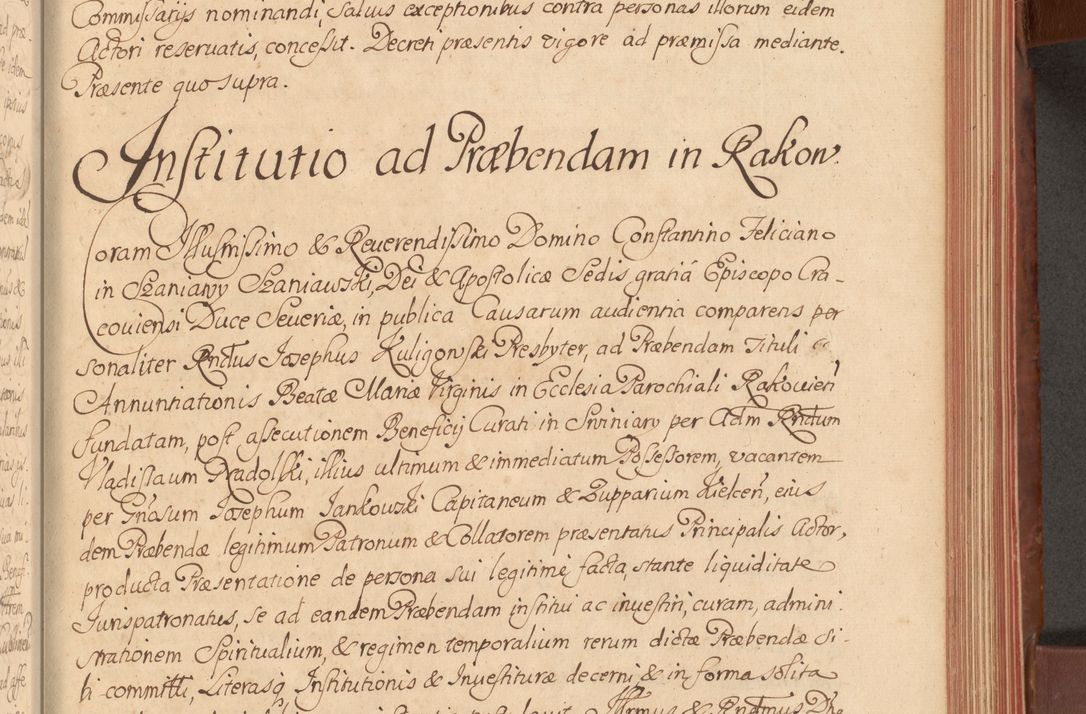 Commissarys nominandi, salvis exceptionibus contra personas illorum eidem
Actori reservatis, concessit. Decreti præsentis vigore ad præmissa mediante.
Præsente quo supra.
Institutio ad Præbendam in Rakow.
Coram Illusmissimo & Reverendissimo Domino Constantino Feliciano
in Szaniawy Szaniawski, Dei & Apostolicæ Sedis gratiâ Episcopo Cra-
coviensi Duce Severiæ, in publica Causarum audientia comparens per
sonaliter Rndus Josephus Kuligowski Presbyter, ad Præbendam Tituli
Annuntiationis Beatæ Mariæ Virginis in Ecclesia Parochiali Rakovien
fundatam, post assecutionem Beneficij Curati in Swiniary per Adm Rndum
Vladislaum Dradolski, illius ultimum & immediatum Possessorem, vacantem
per Gnosum Josephum Jankowski Capitaneum & Zupparium Kielcen, eius
dem Præbendæ legitimum Patronum & Collatorem præsentatus Principalis Actor,
producta Præsentatione de persona sui legitimè facta, stante liquiditate
Jurispatronatus, se ad eandem Præbendam institui ac investiri, curam, admini
strationem Spiritualium, & regimen temporalium rerum dictæ Præbendæ si-
bi committi, Literasq Institutionis & Investituræ decerni & in forma solita